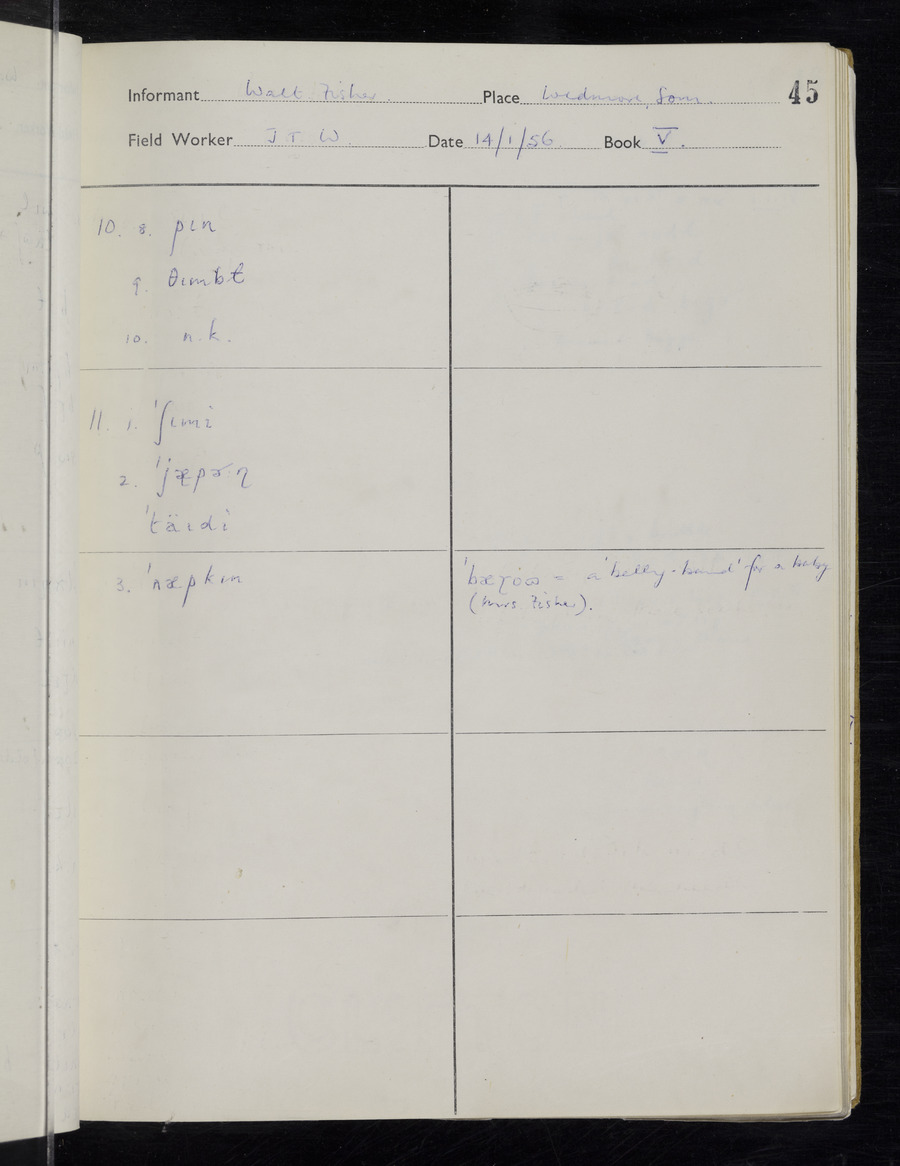 Informant Walt Fisher. Place Wedmore, Som. 45
Field Worker J T W. Date 14/1/56 Book V.
10. 8. pɪn
9. θɪmbɫ
10. n.k.
11. 1. ˈʃɪmi
2. ˈjæpəɹn̩
ˈtäɪdi
3. ˈnæpkɪn
= a 'belly-band' for a baby
(Mrs. Fisher).